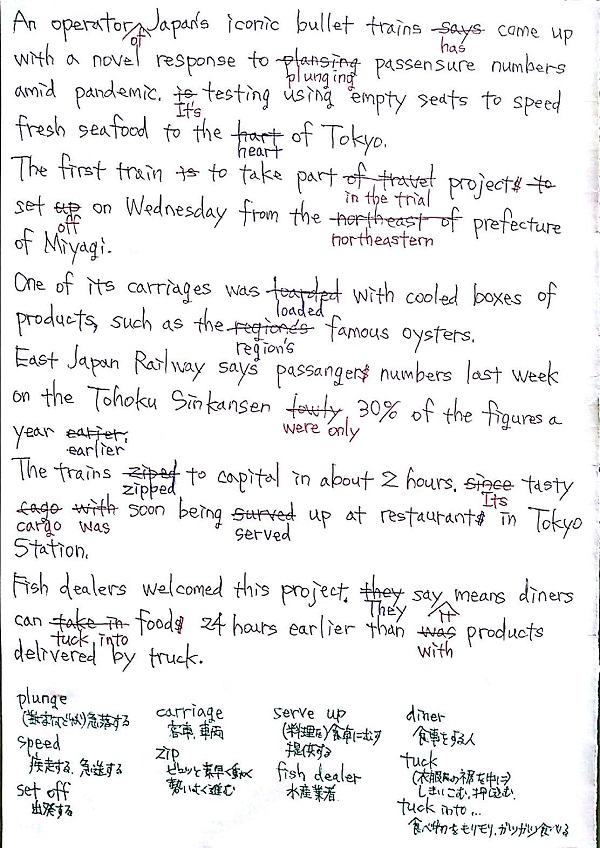 An operator of Japan's iconic bullet trains says has come up
with a novel response to plansing plunging passensure numbers
amid pandemic. is It's testing using empty seats to speed
fresh seafood to the hart heart of Tokyo.
The first train is to take part of travel in the trial projects to
set up off on Wednesday from the northeast of northeastern prefecture
of Miyagi.
One of its carriages was loarded loaded with cooled boxes of
products, such as the regione's region's famous oysters.
East Japan Railway says passangers numbers last week
on the Tohoku Sinkansen lowly were only 30% of the figures a
year earjer. earlier
The trains ziped zipped to capital in about 2 hours. since Its tasty
cago cargo with was soon being surved served up at restaurants in Tokyo
Station.
Fish dealers welcomed this project. they They say it means diners
can take in tuck into foods 24 hours earlier than was with products
delivered by truck.
plunge
(数字などが)急落する
speed
疾走する、急送する
set off
出発する
carriage
客車、車両
zip
ピュッと素早く動く
勢いよく進む
serve up
(料理を)食卓に出す
提供する
fish dealer
水産業者
diner
食事をする人
tuck
(衣服の裾を中に)
しまいこむ、押し込む
tuck into...
食べ物をモリモリ、ガツガツ食べる